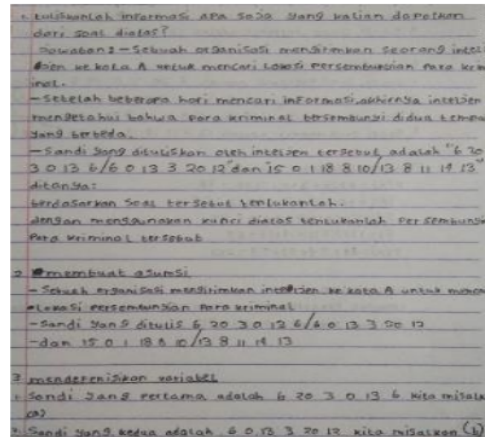 1. tuliskanlah informasi apa saja yang kalian dapatkan
dari soal diatas?
Jawaban: - Sebuah organisasi mengirimkan seorang intel
ijen ke kota A untuk mencari Lokasi Persembunyian Para krim
inal.
- Setelah beberapa hari mencari informasi, akhirnya intelijen
mengetahui bahwa para kriminal bersembunyi didua tempa
yang berbeda.
- Sandi yang dituliskan oleh intelijen tersebut adalah "6 20
3 0 13 6/6 0 13 3 20 12" dan "15 0 1 18 8 10/13 8 11 19 13"
ditanya:
berdasarkan Soal tersebut tentukanlah.
dengan menggunakan kunci diatas tentukanlah Persembunyi
Para kriminal tersebut
2 membuat asumsi
- Sebuah organisasi mengirimkan intelijen ke kota A untuk menca
Lokasi Persembunyian Para kriminal
- Sandi yang ditulis 6 20 3 0 13 6/6 0 13 3 20 12
- dan 15 0 1 18 8 10/13 8 11 19 13
3 mendefenisikan variabel
1. Sandi yang pertama adalah 6 20 3 0 13 6 kita misalk
(a)
2. Sandi yang kedua adalah 6 0 13 3 20 12 kita misalkan (b)